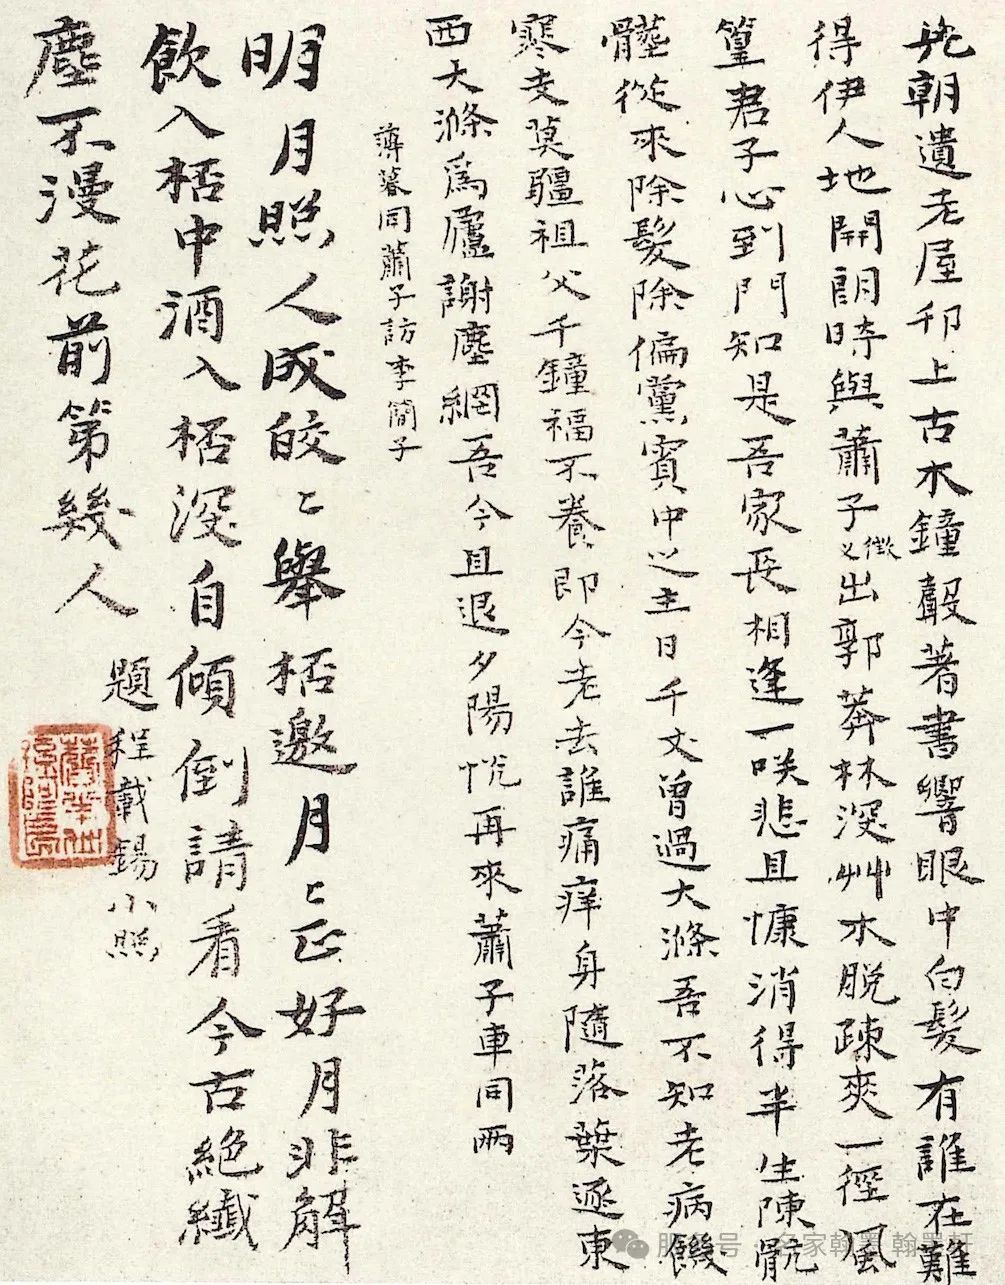 先朝遺老屋卯上古木鐘聲著書響眼中白髮有誰在難
得伊人地開朗時與蕭子徵乂出郭莽林深艸木脱疎爽一徑風
篁君子心到門知是吾家長相逢一咲悲且慷消得半生陳骯
髒從來除髮除偏黨賓中之主日千丈曾過大滌吾不知老病饑
寒支莫疆祖父千鐘福不養即今老去誰痛痒身隨落葉逐東
西大滌爲廬謝塵網吾今且退夕陽怳再來蕭子車同兩
薄暮同蕭子訪李簡子
明月照人成皎〻舉桮邀月〻正好月非解
飲入桮中酒入桮深自傾倒請看今古絶纖
塵不漫花前第幾人
題程載錫小照
服 号 · 名家翰墨翰墨軒